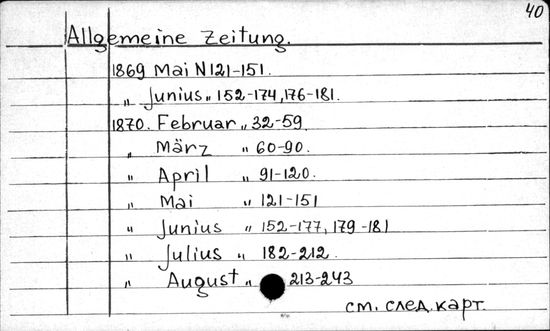 40
Allgemeine Zeitung.
1869 Mai N 121-151.
„ Junius „ 152-174, 176-181.
1870. Februar „ 32-59.
„ März „ 60-90.
„ April „ 91-120.
„ Mai „ 121-151
„ Junius „ 152-177, 179-181
„ Julius „ 182-212.
„ August „ 213-243
см. след. карт.